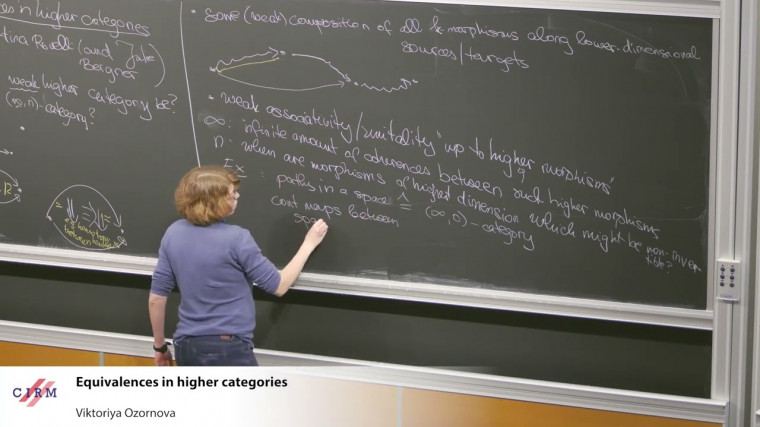 es in higher categories
tina Rovelli (and Julie
Bergner)
weak higher category be?
(∞,n)-category?
• some (weak) composition of all k-morphisms along lower-dimensional
sources/targets
• weak associativity/unitality "up to higher morphisms"
∞: infinite amount of coherences between such higher morphisms
n: when are morphisms of highest dimension which might be non-inver
tible?
Ex: paths in a space ≙ (∞,0)-category
cont maps between
spa
e.g. homotopy
between
CIRM
Equivalences in higher categories
Viktoriya Ozornova